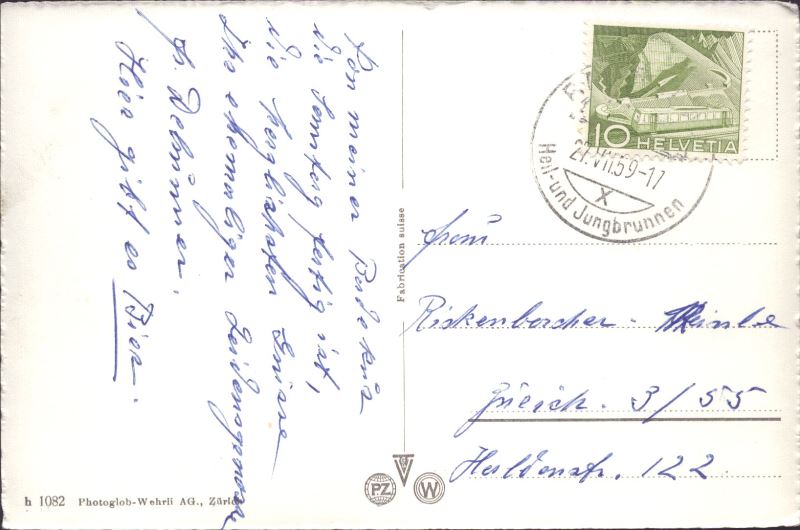 Von meiner Badekur
die Sonntag fertig ist,
die herzlichsten Grüsse
Ihr ehemaliger Leidensgenosse
Hier gibt es Bier.
Fabrication suisse
h 1082 Photoglob-Wehrli AG., Zürich
PZ W
10 HELVETIA
27.VII.59-17
X
Heil- und Jungbrunnen
Frau
Rickenbacher -
Zürich. 3/55
Haldenstr. 122